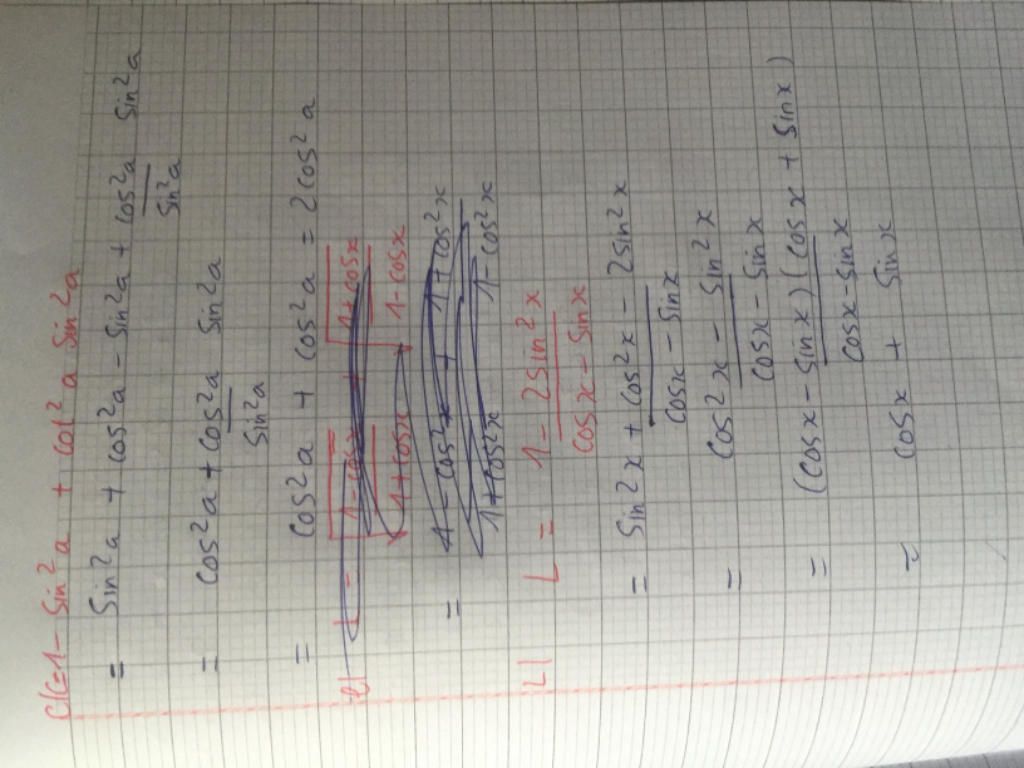 C/C=1 - Sin²a + cot²a Sin²a
= Sin²a + cos²a - Sin²a + cos²a/Sin²a Sin²a
= cos²a + cos²a/Sin²a Sin²a
= cos²a + cos²a = 2cos²a
L = 1 - 2Sin²x / cosx - Sinx
= Sin²x + cos²x - 2Sin²x / cosx - Sinx
= cos²x - Sin²x / cosx - Sinx
= (cosx - Sinx)(cosx + Sinx) / cosx - Sinx
= cosx + Sinx